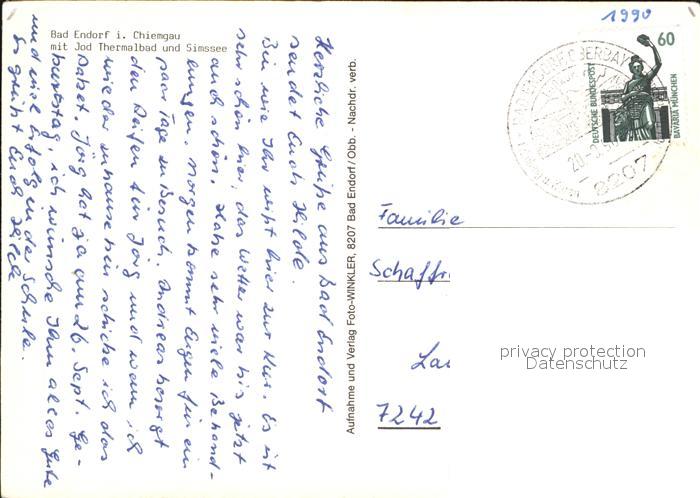 1990
Bad Endorf i. Chiemgau
mit Jod Thermalbad und Simssee
Herzliche Grüße aus Bad Endorf
sendet Euch Hilde.
Bin wie Ihr wißt hier zur Kur. Es ist
sehr schön hier, das Wetter war bis jetzt
auch schön. Habe sehr viele Behand-
lungen. Morgen kommt Eugen für ein
paar Tage zu Besuch. Andreas besorgt
den Reifen für Jörg und wenn ich
wieder zuhause bin schicke ich das
Paket. Jörg hat ja am 26. Sept. Ge-
burtstag, ich wünsche Ihm alles Gute
und viel Erfolg in der Schule.
Es grüßt Euch Hilde
Aufnahme und Verlag Foto-WINKLER, 8207 Bad Endorf/Obb. - Nachdr. verb.
60
DEUTSCHE BUNDESPOST
BAVARIA MÜNCHEN
8207
Familie
Schaffr
La
7242
privacy protection
Datenschutz